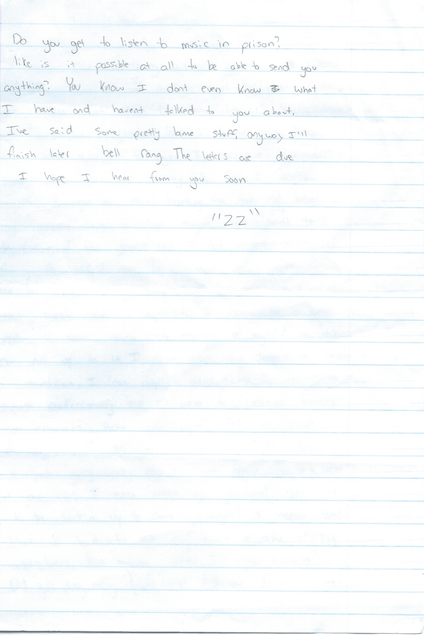 Do you get to listen to music in prison?
like is it possible at all to be able to send you
anything? You know I dont even know what
I have and havent talked to you about,
I've said some pretty lame stuff, anyway I'll
finish later bell rang The letters are due
I hope I hear from you soon
"ZZ"